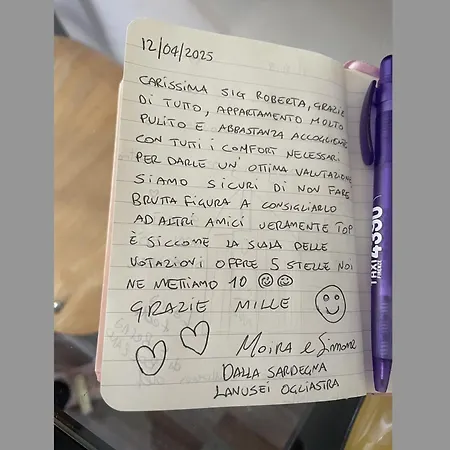 12/04/2025
CARISSIMA SIG ROBERTA, GRAZIE
DI TUTTO, APPARTAMENTO MOLTO
PULITO E ABBASTANZA ACCOGLIENTE
CON TUTTI I COMFORT NECESSARI
PER DARLE UN' OTTIMA VALUTAZIONE
SIAMO SICURI DI NON FARE
BRUTTA FIGURA A CONSIGLIARLO
AD ALTRI AMICI VERAMENTE TOP
È SICCOME LA SCALA DELLE
VOTAZIONI OFFRE 5 STELLE NOI
NE METTIAMO 10
GRAZIE MILLE
Moira e Simone
DALLA SARDEGNA
LANUSEI OGLIASTRA
TAXI
FIRENZE
4390